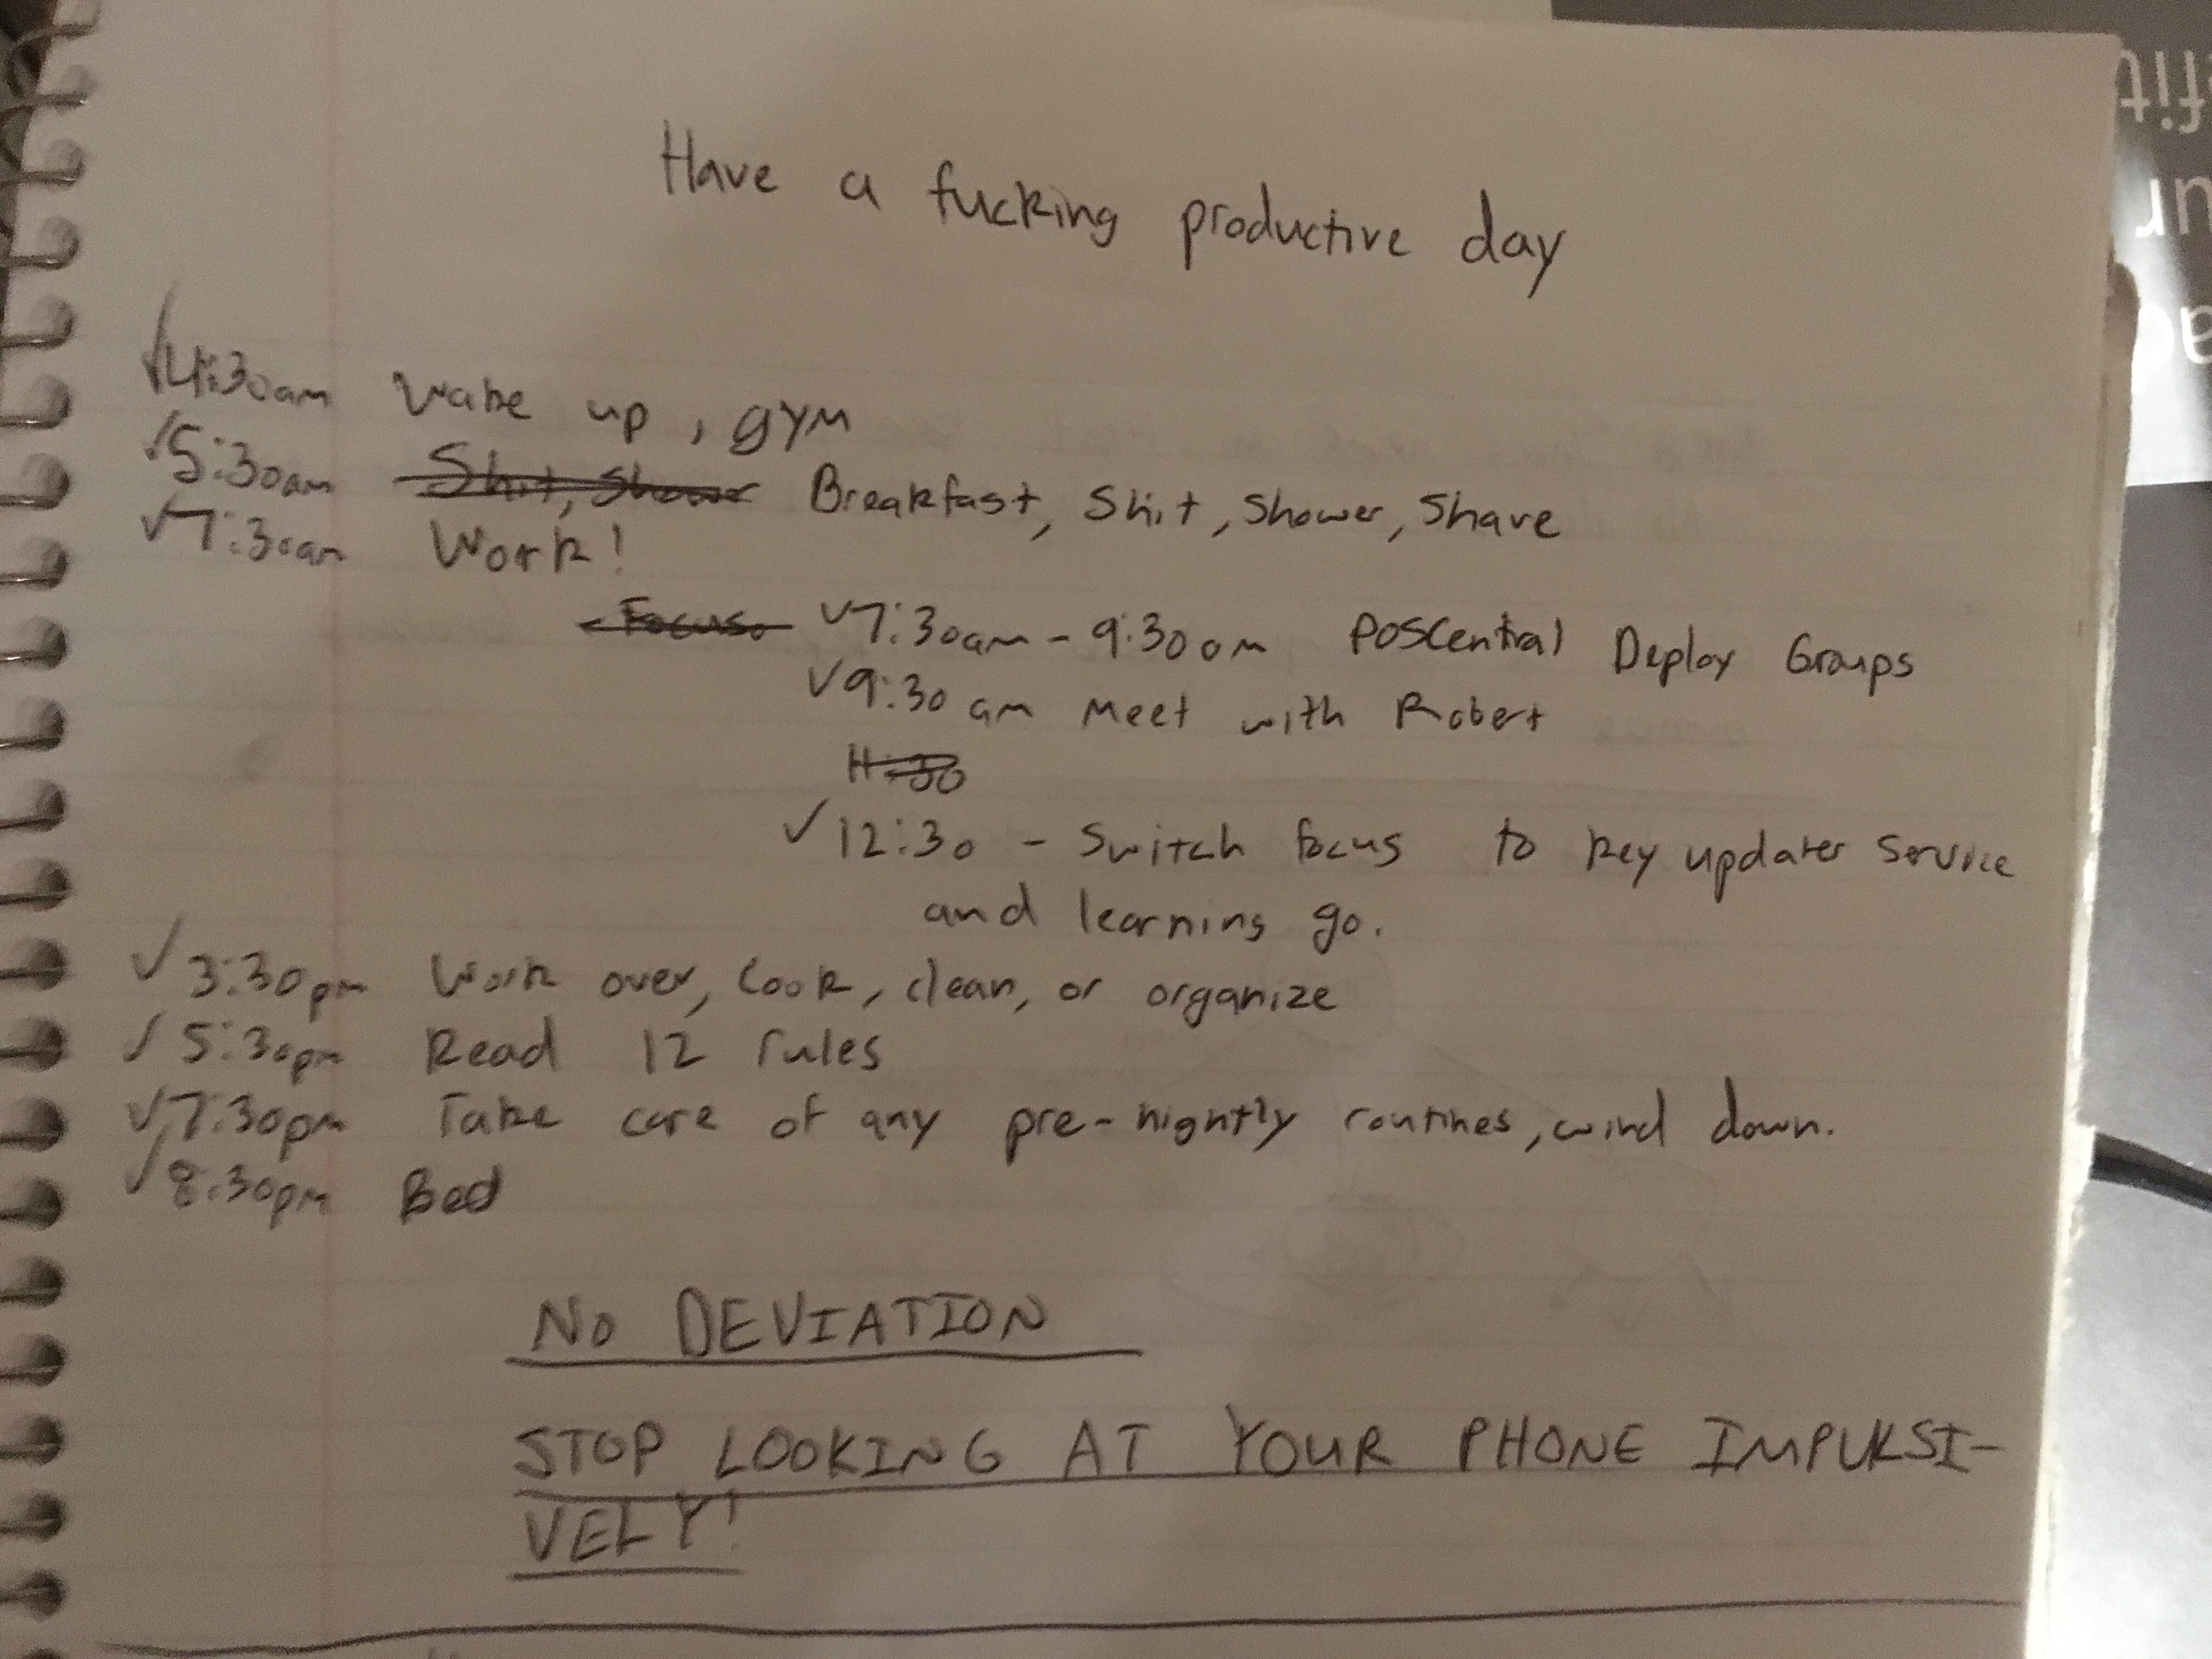 Have a fucking productive day
✓4:30am Wake up, gym
✓5:30am Shit, Shower Breakfast, Shit, Shower, Shave
✓7:30am Work!
Focus: ✓7:30am - 9:30am POSCentral Deploy Groups
✓9:30am Meet with Robert
✓12:30 - Switch focus to key updater service
and learning go.
✓3:30pm Work over, cook, clean, or organize
✓5:30pm Read 12 rules
✓7:30pm Take care of any pre-nightly routines, wind down.
✓8:30pm Bed
NO DEVIATION
STOP LOOKING AT YOUR PHONE IMPULSI-
VELY!